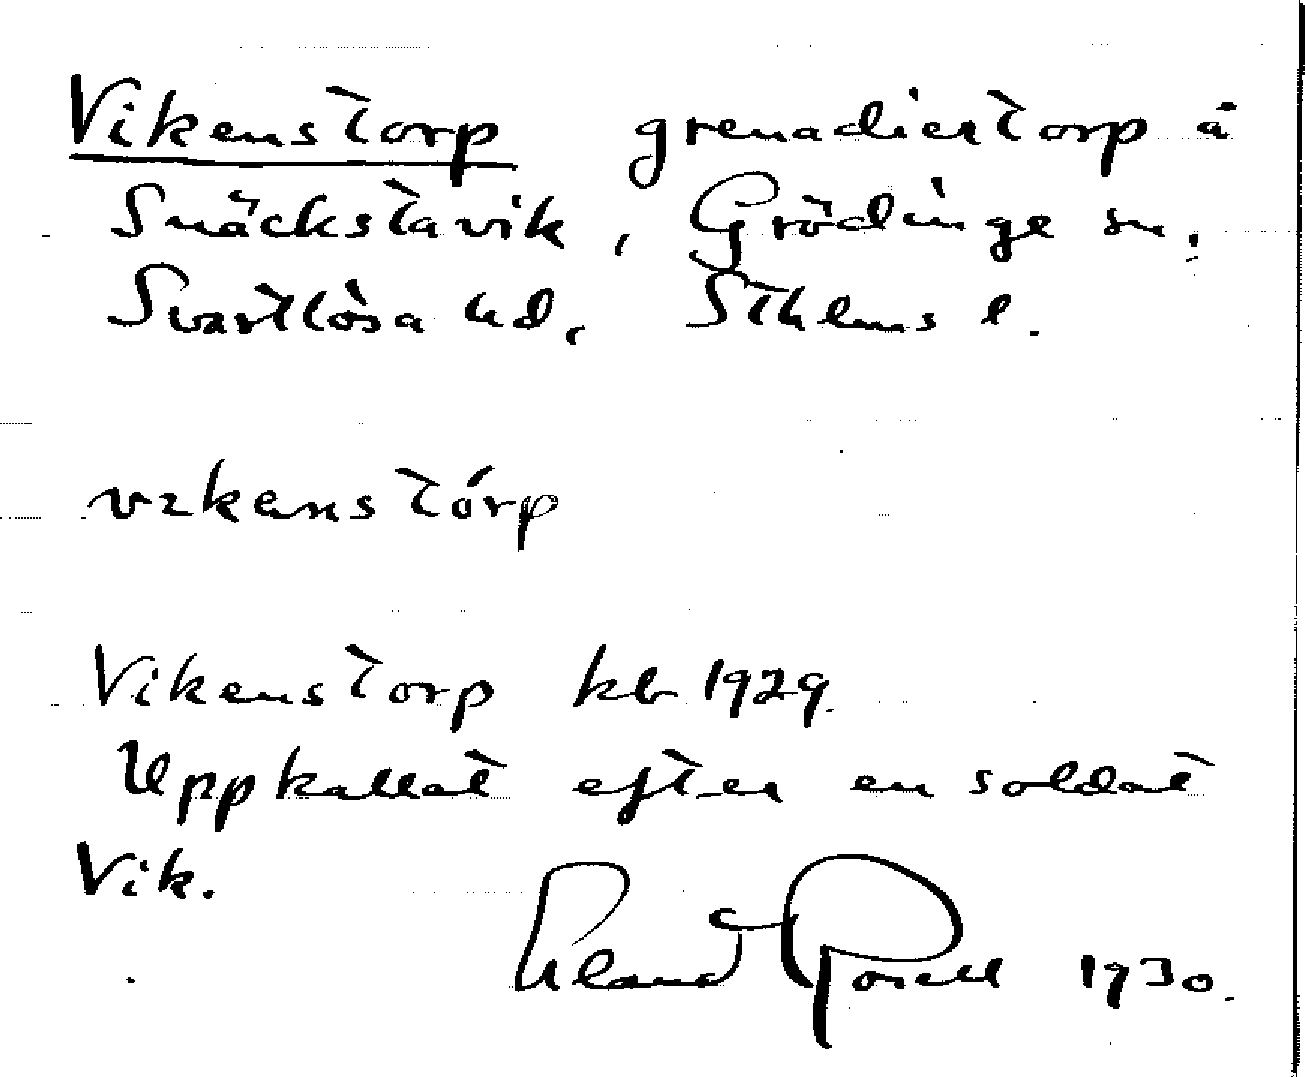 Vikenstorp grenadiertorp å
Snäckstavik, Grödinge sn.
Svartlösa hd, Sthlms l.
vɪkenstórp
Vikenstorp kb 1929.
Uppkallat efter en soldat
Vik.
1930.